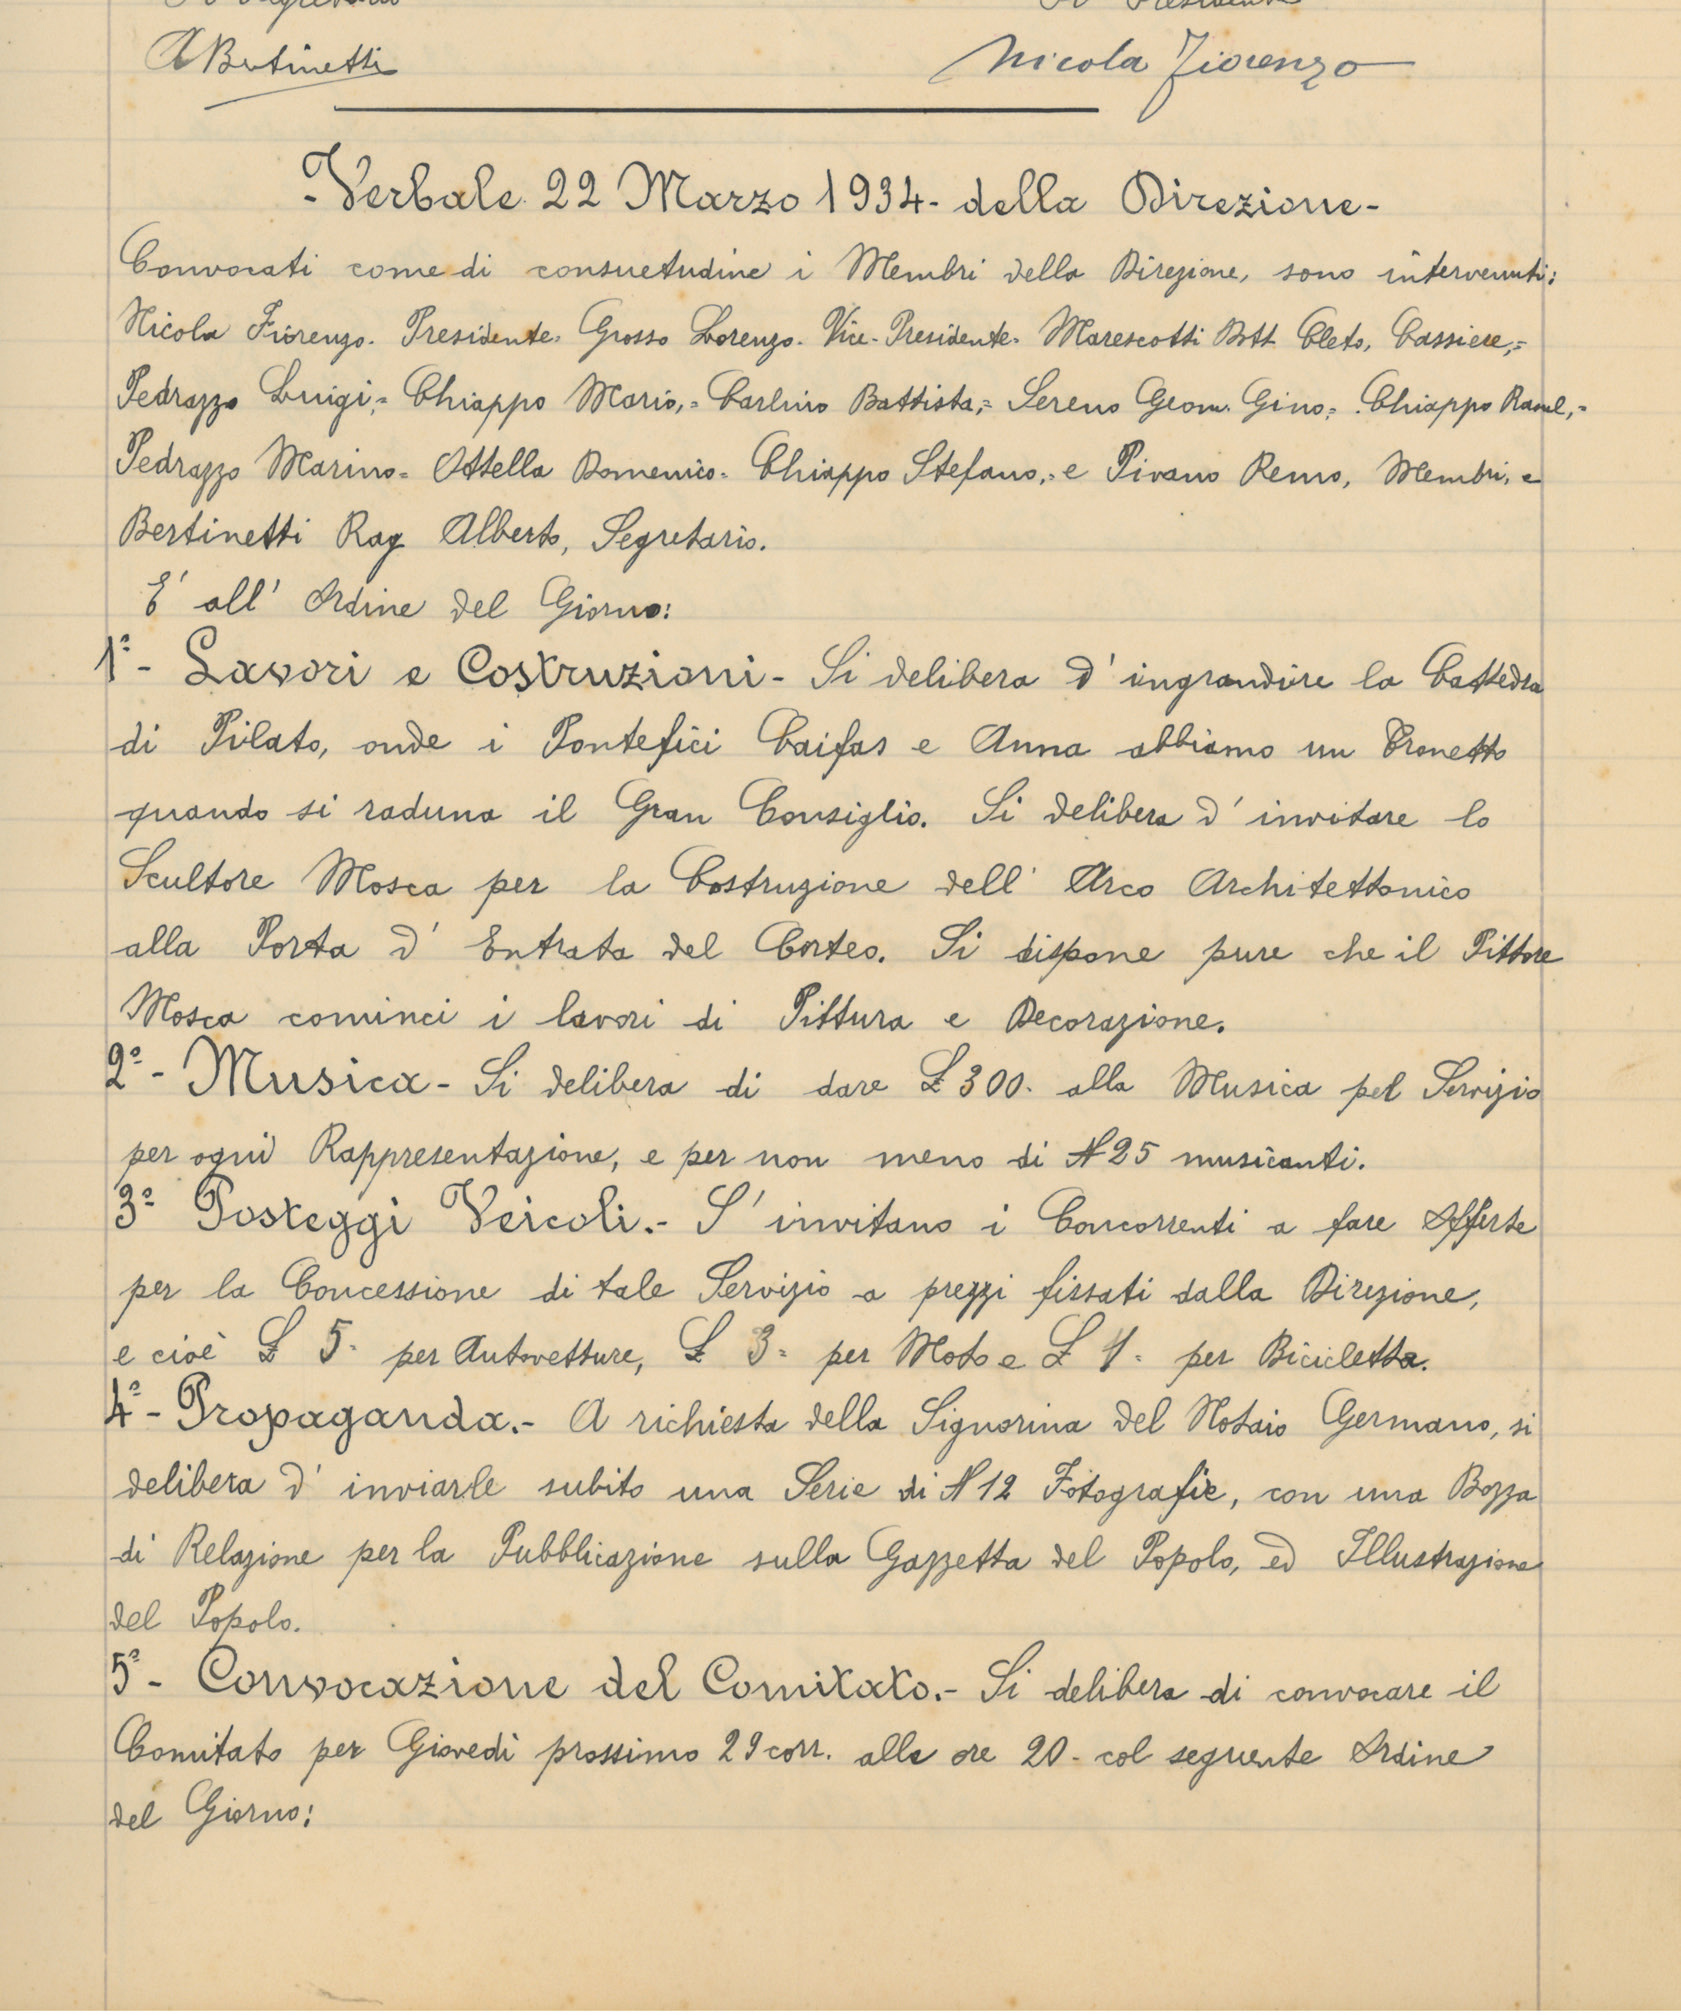 Il Segretario Il Presidente
ABertinetti Nicola Fiorenzo
- Verbale 22 Marzo 1934 - della Direzione -
Convocati come di consuetudine i Membri della Direzione, sono intervenuti:
Nicola Fiorenzo - Presidente - Grosso Lorenzo - Vice-Presidente - Marescotti Dott Cleto, Cassiere, =
Pedrazzo Luigi, = Chiappo Mario, = Carlino Battista, = Sereno Geom. Gino, = Chiappo Raoul, =
Pedrazzo Marino = Ottella Domenico = Chiappo Stefano, = e Pivano Remo, Membri, e
Bertinetti Rag Alberto, Segretario.
E' all' Ordine del Giorno:
1º - Lavori e Costruzioni - Si delibera d' ingrandire la Cattedra
di Pilato, onde i Pontefici Caifas e Anna abbiamo un Tronetto
quando si raduna il Gran Consiglio. Si delibera d' invitare lo
Scultore Mosca per la Costruzione dell' Arco Architettonico
alla Porta d' Entrata del Corteo. Si dispone pure che il Pittore
Mosca cominci i lavori di Pittura e Decorazione.
2º - Musica - Si delibera di dare £ 300 - alla Musica pel Servizio
per ogni Rappresentazione, e per non meno di N 25 musicanti.
3º Posteggi Veicoli. - S' invitano i Concorrenti a fare Offerte
per la Concessione di tale Servizio a prezzi fissati dalla Direzione,
e cioè £ 5 = per Autovetture, £ 3 = per Moto e £ 1 = per Bicicletta.
4º - Propaganda. - A richiesta della Signorina del Notaio Germano, si
delibera d' inviarle subito una Serie di N 12 Fotografie, con una Bozza
di Relazione per la Pubblicazione sulla Gazzetta del Popolo, ed Illustrazione
del Popolo.
5º - Convocazione del Comitato. - Si delibera di convocare il
Comitato per Giovedì prossimo 29 corr. alle ore 20 - col seguente Ordine
del Giorno: